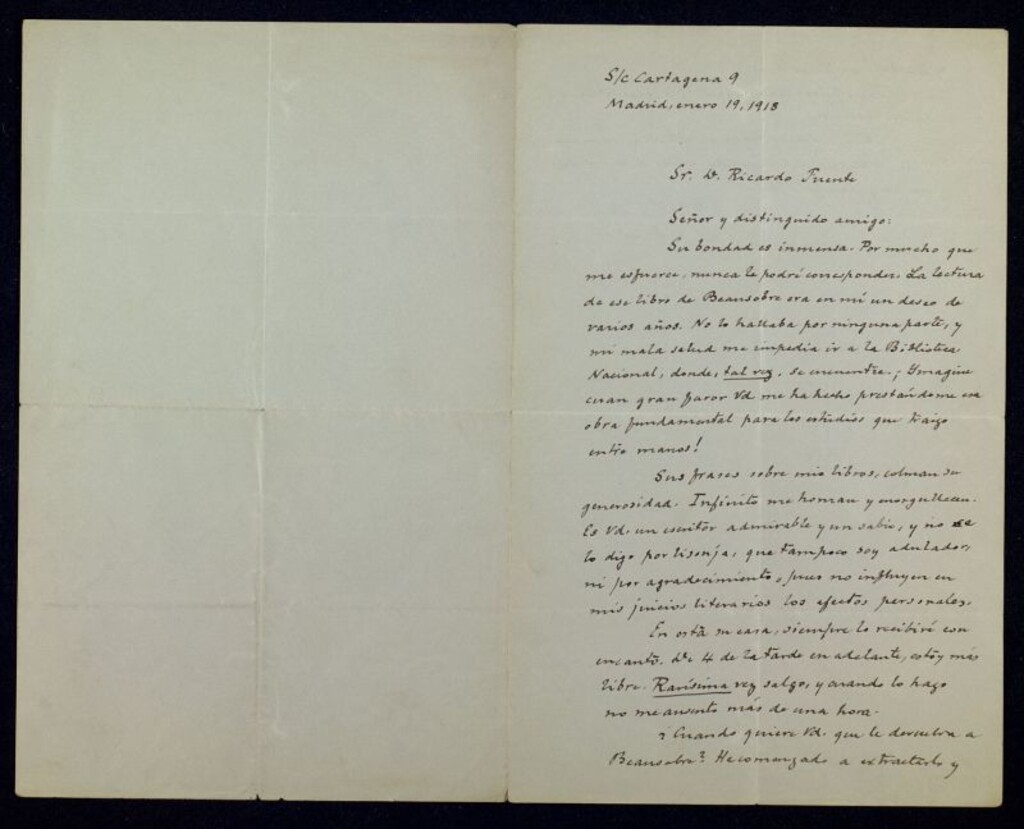 S/c Cartagena 9
Madrid, enero 19, 1918
Sr. D. Ricardo Fuente
Señor y distinguido amigo:
Su bondad es inmensa. Por mucho que
me esfuerce, nunca le podré corresponder. La lectura
de ese libro de Beausobre era en mí un deseo de
varios años. No lo hallaba por ninguna parte, y
mi mala salud me impedía ir a la Biblioteca
Nacional, donde, tal vez, se encuentre. ¡Ymagine
cuan gran favor Vd me ha hecho prestándome esa
obra fundamental para los estudios que traigo
entre manos!
Sus frases sobre mis libros, colman su
generosidad. Infinito me honran y enorgullecen.
Es Vd. un escritor admirable y un sabio, y no
lo digo por lisonja, que tampoco soy adulador,
ni por agradecimiento, pues no influyen en
mis juicios literarios los afectos personales.
En esta su casa, siempre lo recibiré con
encanto. De 4 de la tarde en adelante, estoy más
libre. Rarísima vez salgo, y cuando lo hago
no me ausento más de una hora.
¿Cuando quiere Vd. que le devuelva a
Beausobre? He comenzado a extractarlo y